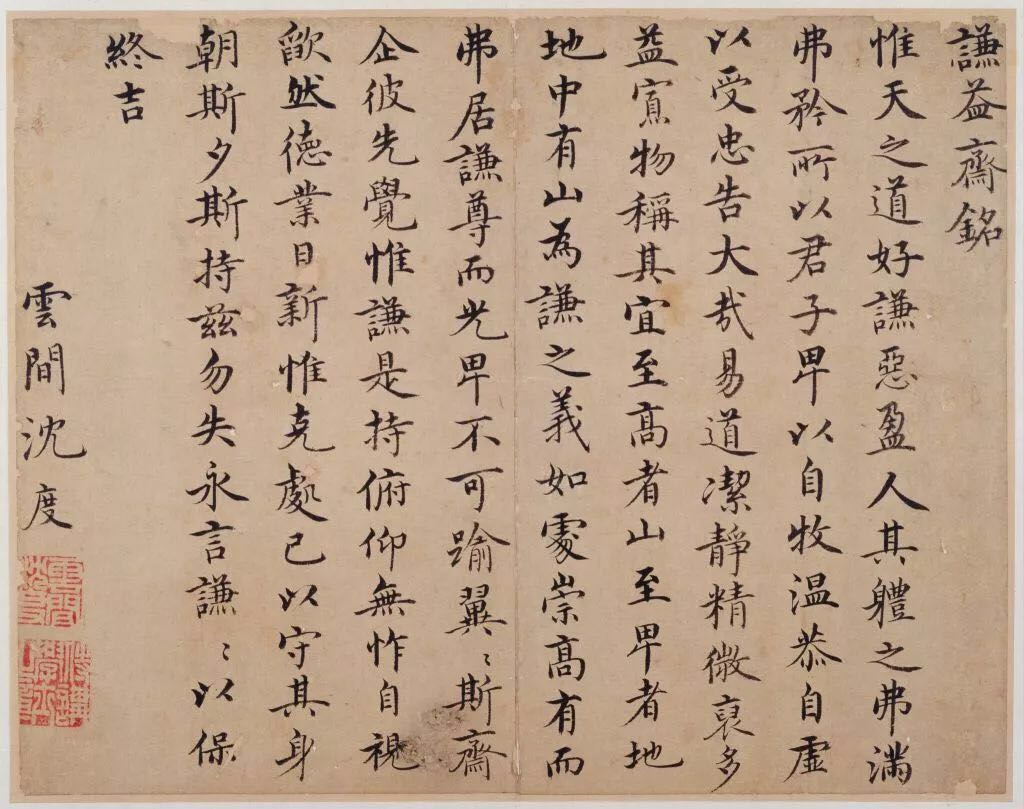 謙益齋銘
惟天之道好謙惡盈人其軆之弗滿
弗矜所以君子卑以自牧温恭自虛
以受忠告大哉易道潔靜精微裒多
益寡物稱其宜至高者山至卑者地
地中有山為謙之義如處崇高有而
弗居謙尊而光卑不可踰翼〻斯齋
企彼先覺惟謙是持俯仰無怍自視
歆然德業日新惟克處己以守其身
朝斯夕斯持兹勿失永言謙〻以保
終吉
雲間沈度